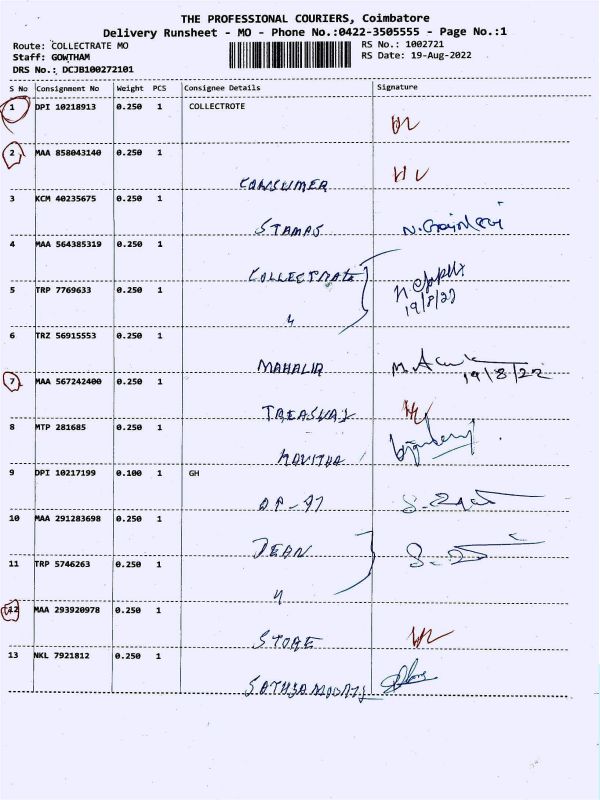 THE PROFESSIONAL COURIERS, Coimbatore
Delivery Runsheet - MO - Phone No.:0422-3505555 - Page No.:1
Route: COLLECTRATE MO
RS No.: 1002721
Staff: GOWTHAM
RS Date: 19-Aug-2022
DRS No.: DCJB100272101
S No Consignment No Weight PCS Consignee Details Signature
1 DPI 10218913 0.250 1 COLLECTROTE
2 MAA 858043140 0.250 1
CONSUMER
3 KCM 40235675 0.250 1
STAMPS
4 MAA 564385319 0.250 1
COLLECTRATE
5 TRP 7769633 0.250 1
19/8/22
6 TRZ 56915553 0.250 1
19/8/22
7 MAA 567242400 0.250 1
8 MTP 281685 0.250 1
9 DPI 10217199 0.100 1 GH
10 MAA 291283698 0.250 1
DEAN
11 TRP 5746263 0.250 1
12 MAA 293920978 0.250 1
STORE
13 NKL 7921812 0.250 1